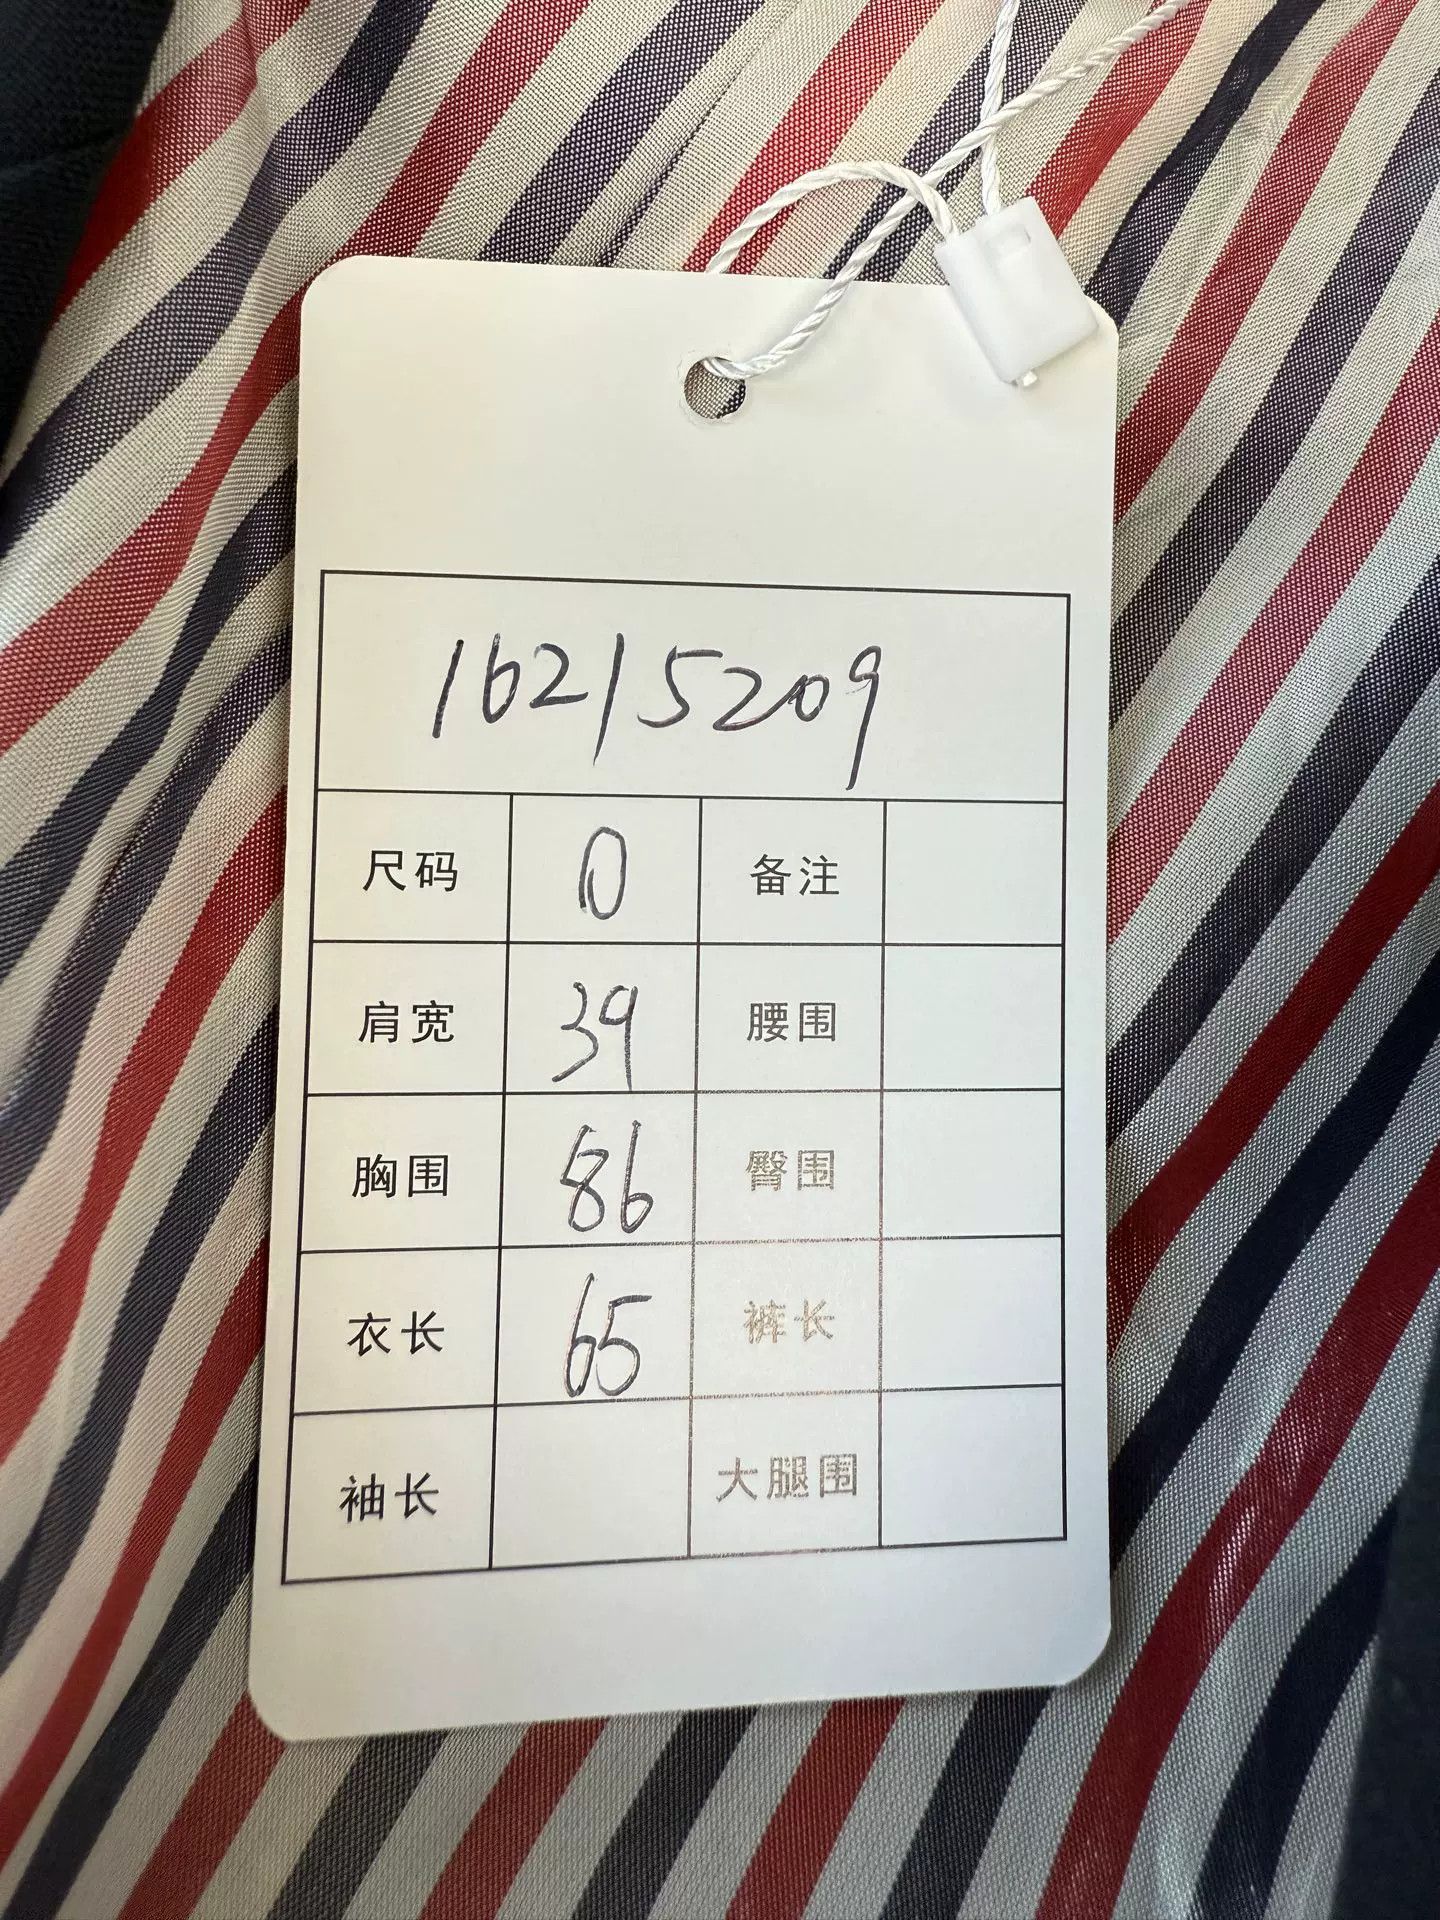 16215209
尺码 0 备注
肩宽 39 腰围
胸围 86 臀围
衣长 65 裤长
袖长 大腿围